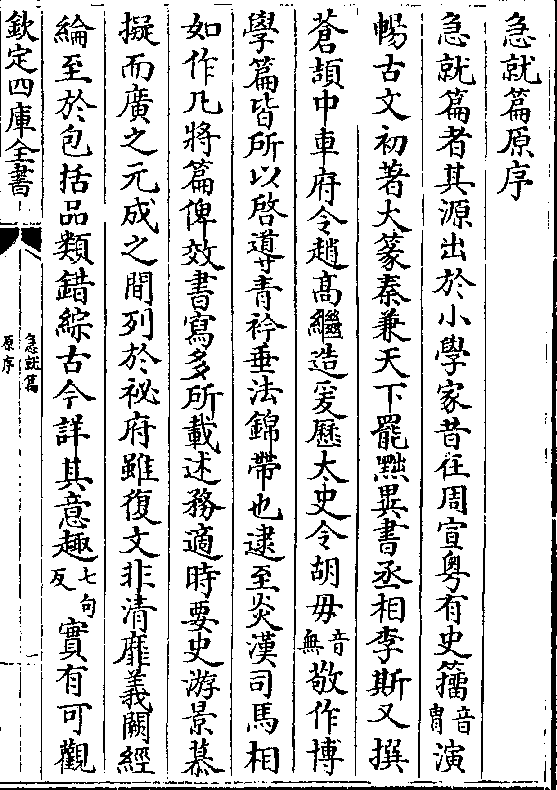 急就篇原序
急就篇者其源出於小學家昔在周宣粤有史籀音胄演
暢古文初著大篆秦兼天下罷黜異書丞相李斯又撰
蒼頡中車府令趙髙繼造爰歷太史令胡毋音無敬作博
學篇皆所以啓導青衿垂法錦帶也逮至炎漢司馬相
如作凡將篇俾效書寫多所載述務適時要史游景慕
擬而廣之元成之間列於祕府雖復文非清靡義闕經
綸至於包括品類錯綜古今詳其意趣七句反實有可觀
欽定四庫全書
急就篇
原序
一